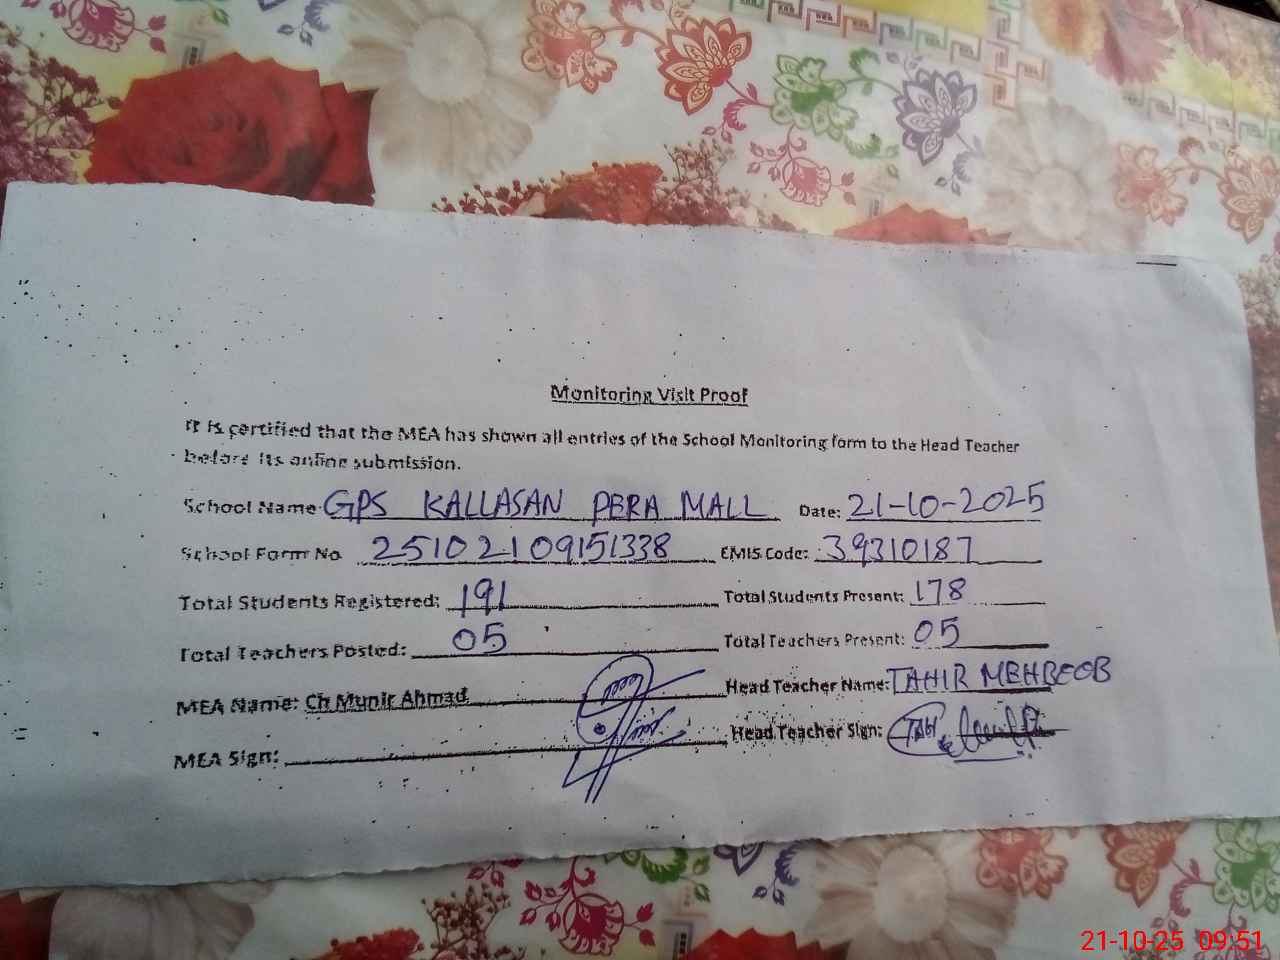 Monitoring Visit Proof
It is certified that the MEA has shown all entries of the School Monitoring form to the Head Teacher
before its online submission.
School Name GPS KALLASAN PERA MALL Date: 21-10-2025
School Form No 25102109151338 EMIS Code: 39310187
Total Students Registered: 191 Total Students Present: 178
Total Teachers Posted: 05 Total Teachers Present: 05
MEA Name: Ch Munir Ahmad Head Teacher Name: TAHIR MEHBOOB
MEA Sign: Head Teacher Sign:
21-10-25 09:51